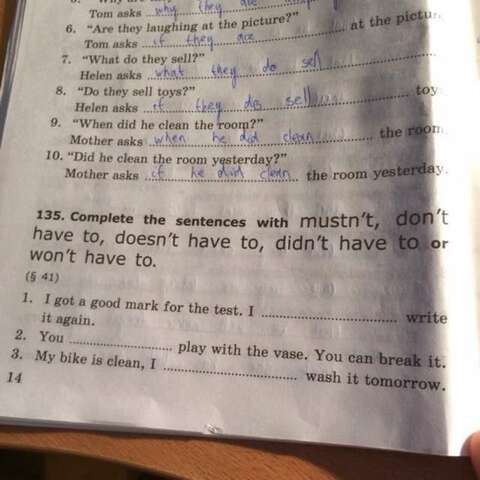 Tom asks why they are
6. "Are they laughing at the picture?"
Tom asks if they are at the pictur
7. "What do they sell?"
Helen asks what they do sell
8. "Do they sell toys?"
Helen asks if they do sell toy
9. "When did he clean the room?"
Mother asks when he did clean the room
10. "Did he clean the room yesterday?"
Mother asks if he did clean the room yesterday.
135. Complete the sentences with mustn't, don't
have to, doesn't have to, didn't have to or
won't have to.
(§ 41)
1. I got a good mark for the test. I ........ write
it again.
2. You ........ play with the vase. You can break it.
3. My bike is clean, I ........ wash it tomorrow.
14